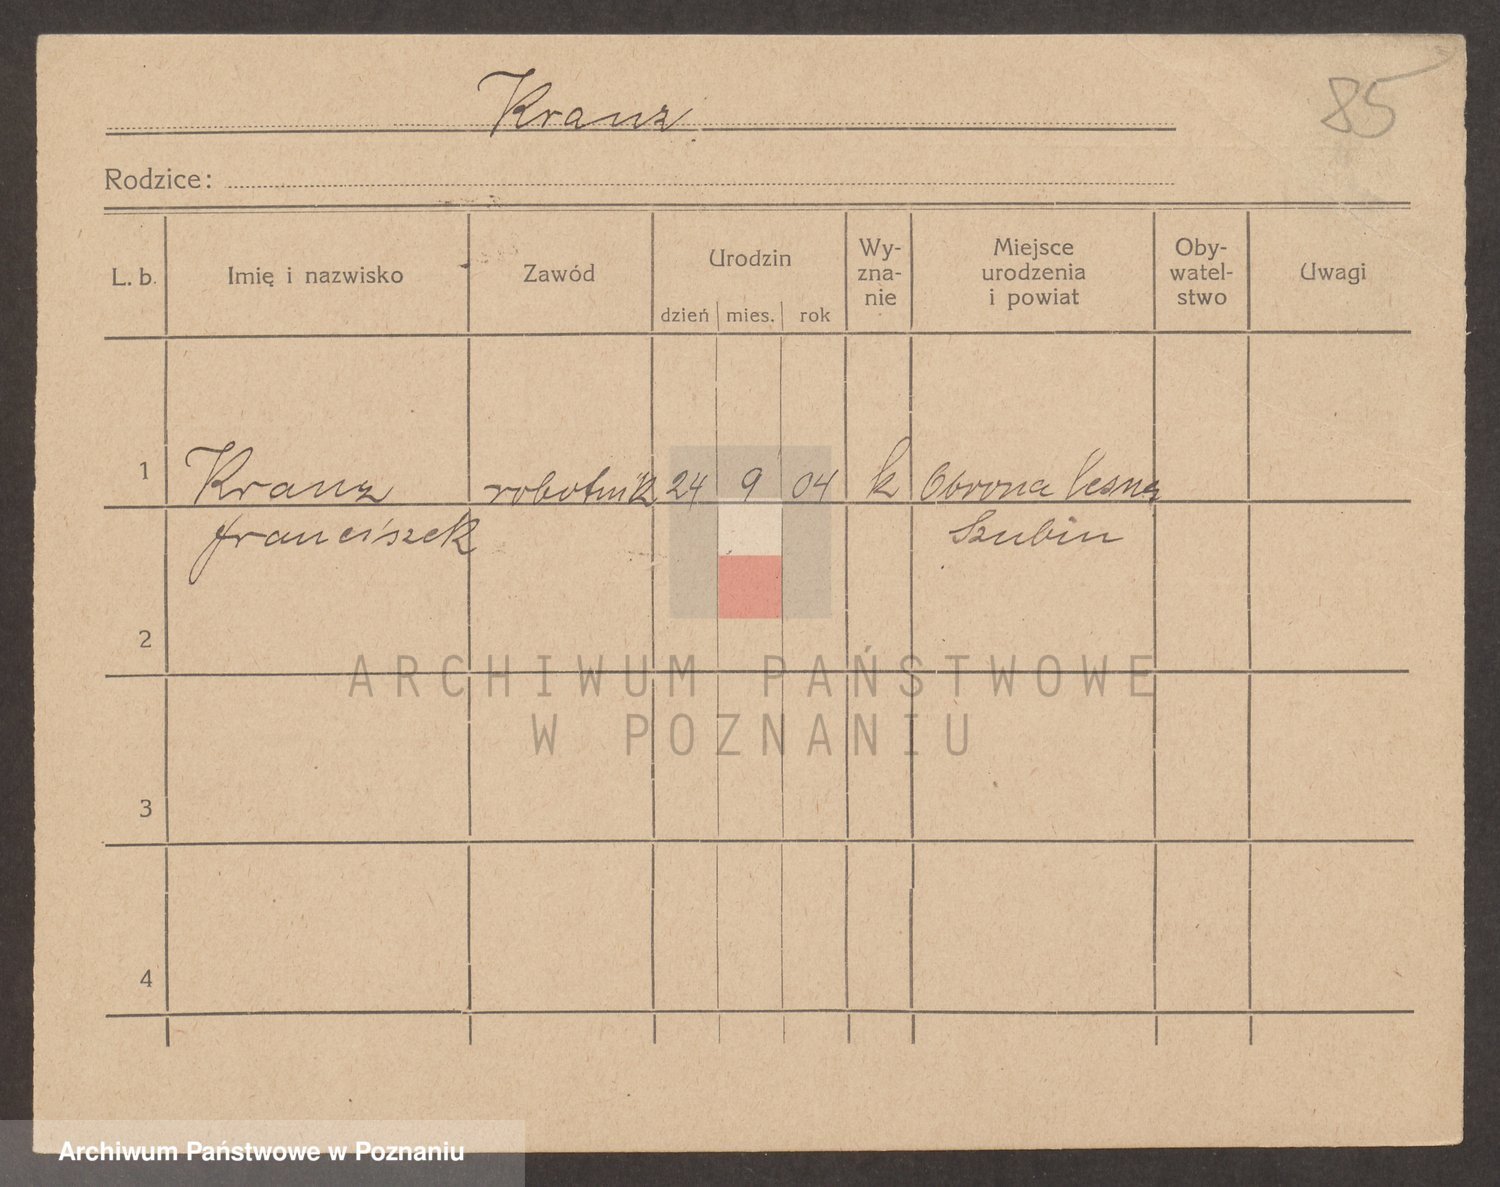 Kranz
85
Rodzice:
L. b. Imię i nazwisko Zawód Urodzin Wy-
zna-
nie Miejsce
urodzenia
i powiat Oby-
watel-
stwo Uwagi
dzień mies. rok
1 Kranz robotnik 24 9 04 k Obrona leśna
franciszek Szubin
2
3
4
ARCHIWUM PAŃSTWOWE
W POZNANIU
Archiwum Państwowe w Poznaniu